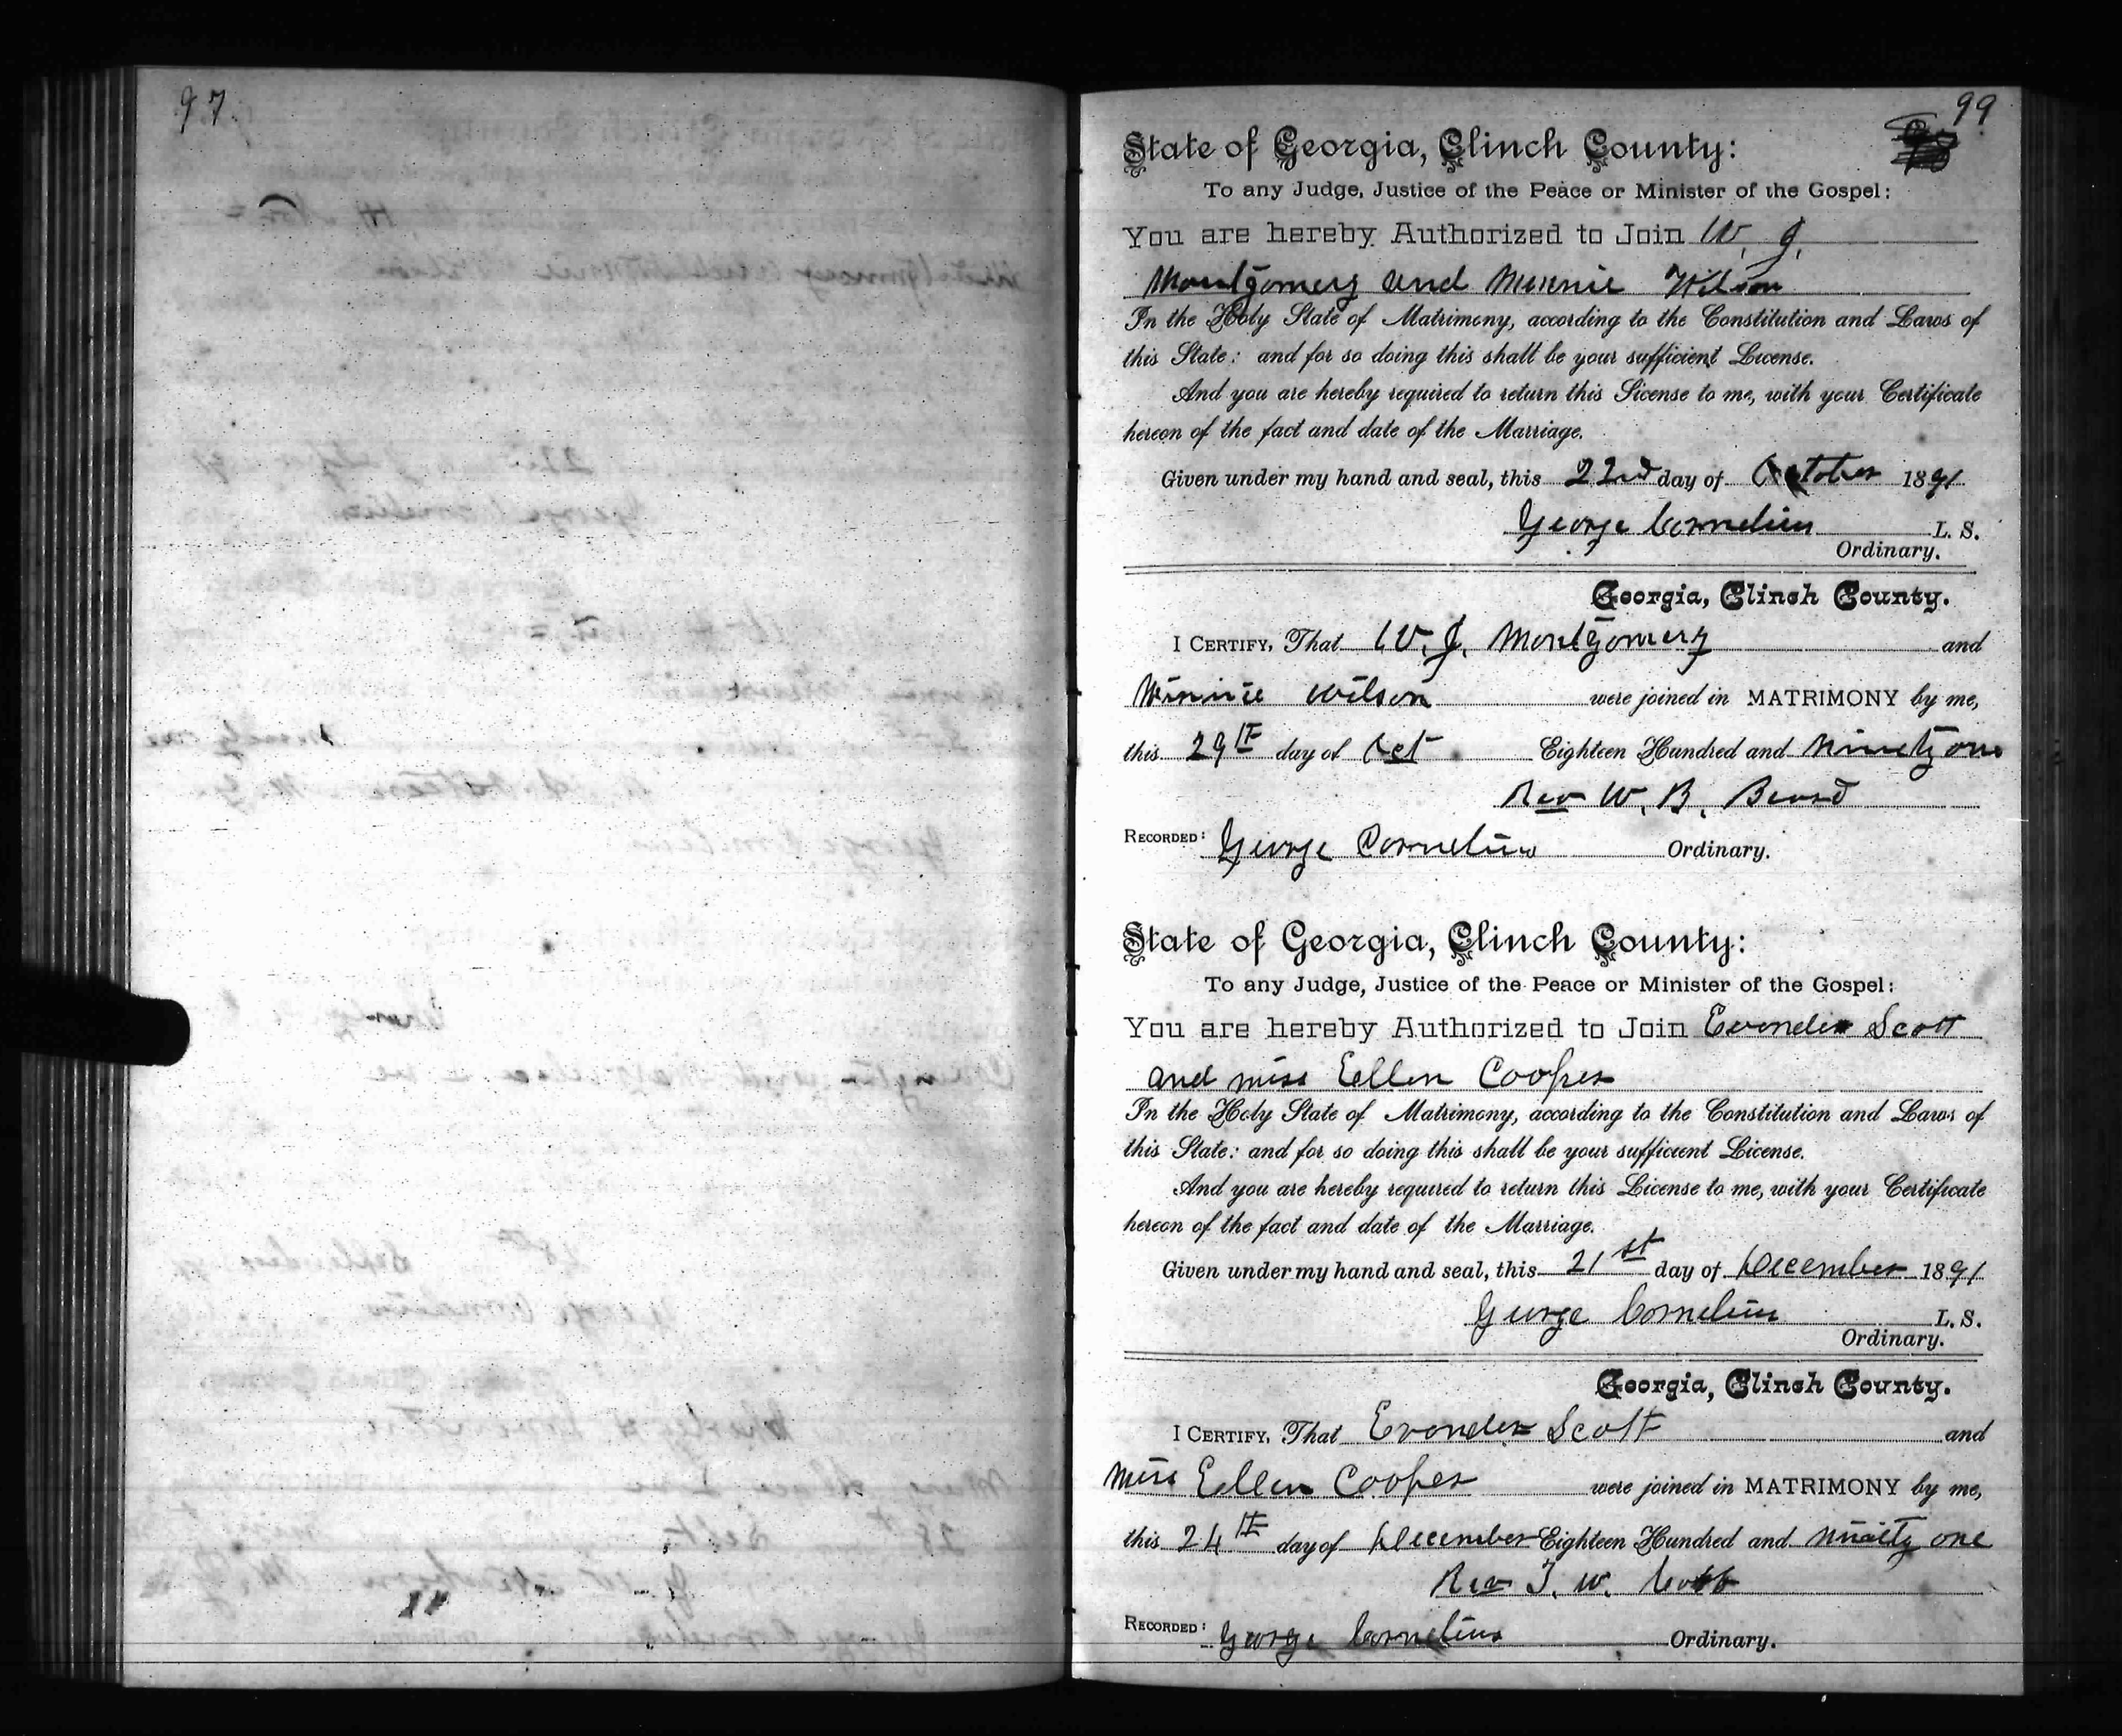 97.
99
State of Georgia, Clinch County:
To any Judge, Justice of the Peace or Minister of the Gospel:
You are hereby Authorized to Join W. J.
Montgomery and Minnie Wilson
In the Holy State of Matrimony, according to the Constitution and Laws of
this State: and for so doing this shall be your sufficient License.
And you are hereby required to return this License to me, with your Certificate
hereon of the fact and date of the Marriage.
Given under my hand and seal, this 22nd day of October 1891
George Cornelius L. S.
Ordinary.
Georgia, Clinch County.
I CERTIFY, That W. J. Montgomery and
Minnie Wilson were joined in MATRIMONY by me,
this 29th day of Oct Eighteen Hundred and ninety one
Rev W. B. Beard
RECORDED: George Cornelius Ordinary.
State of Georgia, Clinch County:
To any Judge, Justice of the Peace or Minister of the Gospel:
You are hereby Authorized to Join Evender Scott
and miss Ellen Cooper
In the Holy State of Matrimony, according to the Constitution and Laws of
this State: and for so doing this shall be your sufficient License.
And you are hereby required to return this License to me, with your Certificate
hereon of the fact and date of the Marriage.
Given under my hand and seal, this 21st day of December 1891
George Cornelius L. S.
Ordinary.
Georgia, Clinch County.
I CERTIFY, That Evender Scott and
Miss Ellen Cooper were joined in MATRIMONY by me,
this 24th day of December Eighteen Hundred and ninety one
Rev J. W. Cobb
RECORDED: George Cornelius Ordinary.